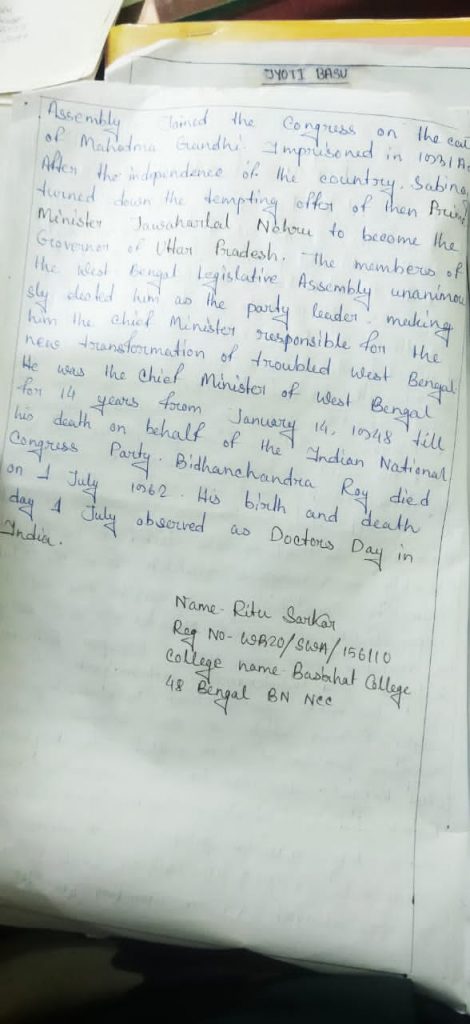 JYOTI BASU
Assembly Joined the Congress on the call
of Mahatma Gandhi. Imprisoned in 1931 A.
After the independence of the country. Sabina,
turned down the tempting offer of then Prime
Minister Jawaharlal Nehru to become the
Governor of Uttar Pradesh. The members of
the West Bengal Legislative Assembly unanimou
sly elected him as the party leader. making
him the chief Minister responsible for the
new transformation of troubled West Bengal.
He was the chief Minister of West Bengal
for 14 years from January 14, 1948 till
his death on behalf of the Indian National
Congress Party. Bidhanchandra Roy died
on 1 July 1962. His birth and death
day 1 July observed as Doctors Day in
India.
Name- Ritu Sarkar
Reg No- WB20/SWA/156110
College name- Basirhat College
48 Bengal BN NCC